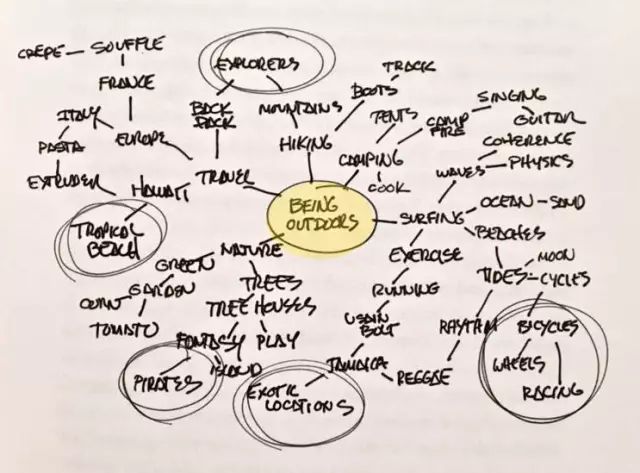 CRÊPE
SOUFFLE
FRANCE
ITALY
EUROPE
PASTA
EXTRUDER
HAWAII
TROPICAL
BEACH
EXPLORERS
BACK
PACK
MOUNTAINS
HIKING
TRAVEL
BOOTS
TRACK
TENTS
CAMP
FIRE
SINGING
GUITAR
CAMPING
COOK
COHERENCE
WAVES
PHYSICS
BEING
OUTDOORS
SURFING
OCEAN
SAND
BEACHES
EXERCISE
TIDES
MOON
CYCLES
RUNNING
USAIN
BOLT
RHYTHM
BICYCLES
WHEELS
RACING
JAMAICA
REGGAE
EXOTIC
LOCATIONS
NATURE
GREEN
GARDEN
TOMATO
TREES
TREE HOUSES
FANTASY
PLAY
ISLAND
PIRATES